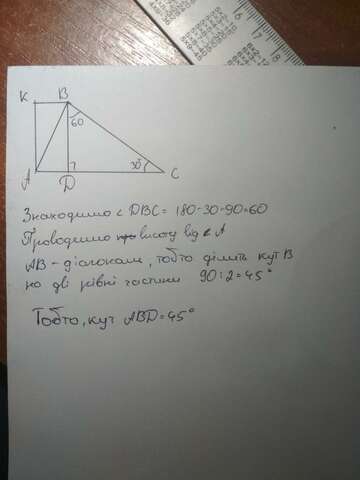 6
17
18
K
B
60
30°
A
D
C
Знаходимо < DBC = 180-30-90=60
Проводимо висоту від < A
AB - діагональ, тобто ділить кут B
на дві рівні частини 90:2=45°
Тобто, кут ABD=45°